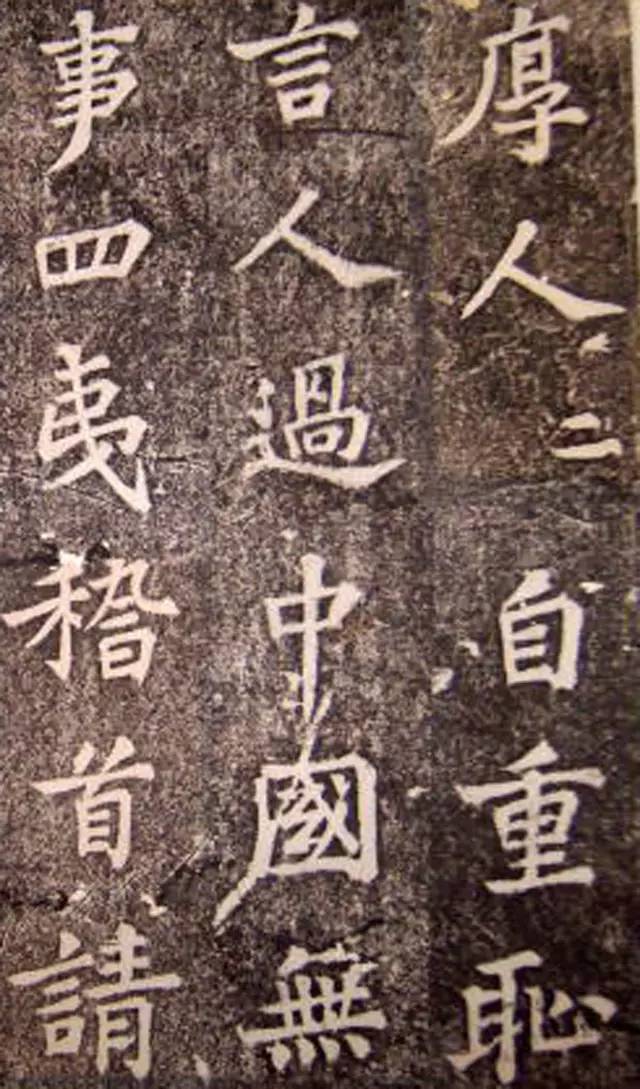 厚人〻自重恥
言人過中國無
事四夷稽首請